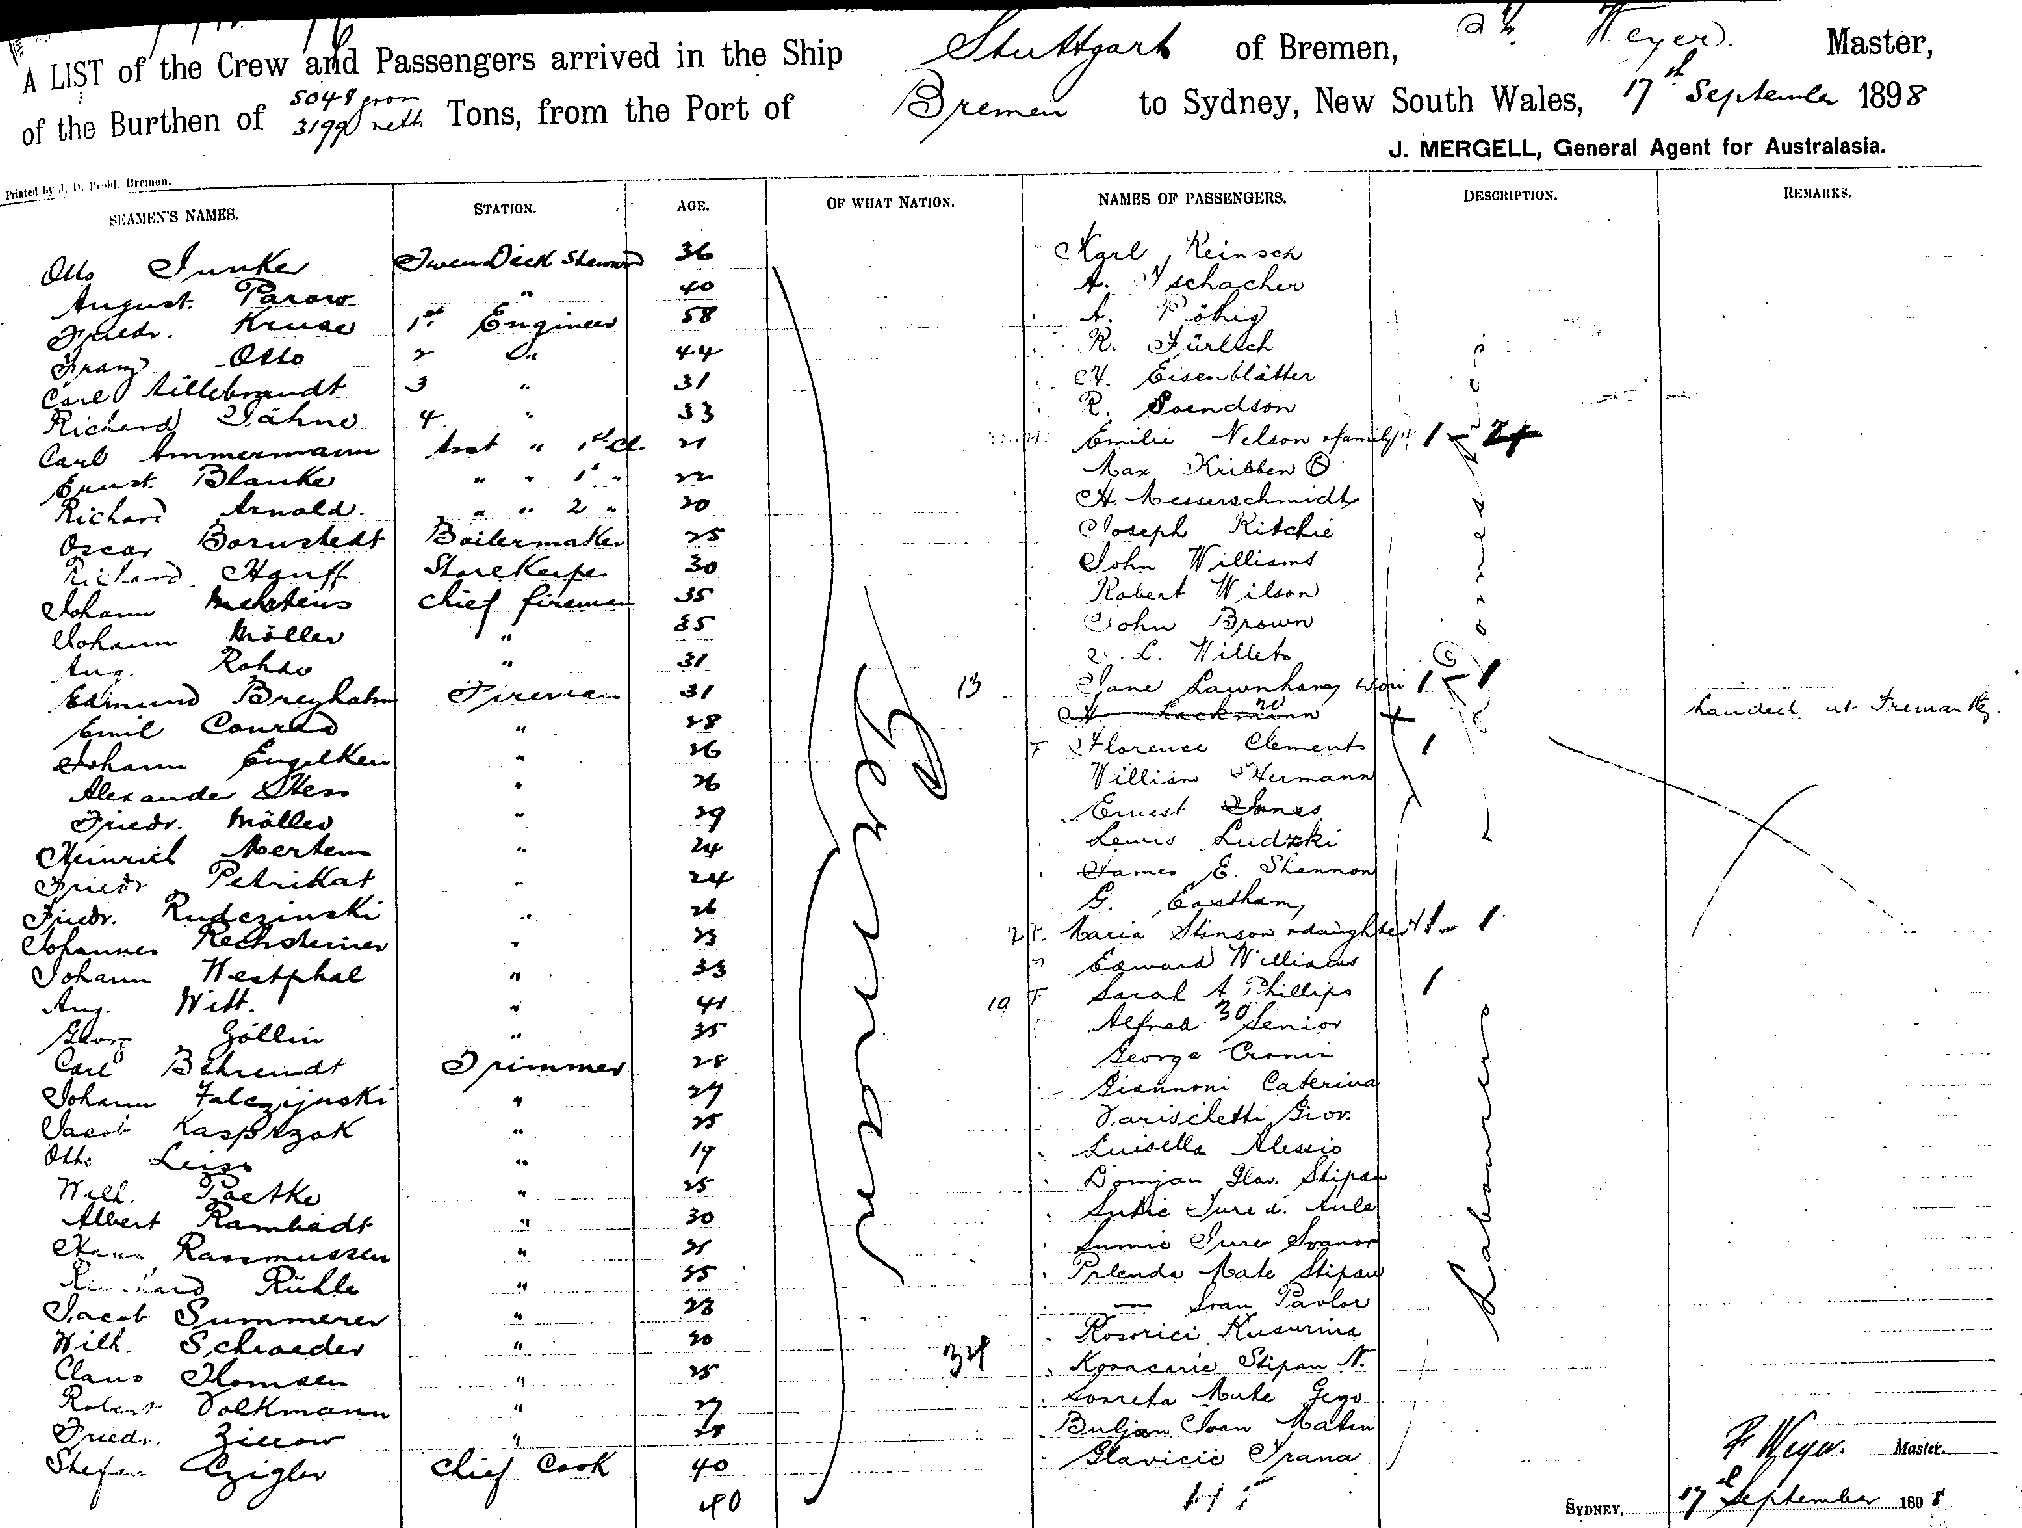 A LIST of the Crew and Passengers arrived in the Ship Stuttgart of Bremen, Weyer Master,
of the Burthen of 5048 gross 3199 nett Tons, from the Port of Bremen to Sydney, New South Wales, 17th September 1898
J. MERGELL, General Agent for Australasia.
Printed by Bremen.
SEAMEN'S NAMES. STATION. AGE. OF WHAT NATION. NAMES OF PASSENGERS. DESCRIPTION. REMARKS.
Otto Junker TweenDeck Steward 36 Karl Reinsch
August Parow " 40 A. Tschacher
Friedr. Kruse 1st Engineer 58 A. Röhig
Franz Otto 2 " 44 R. Fürtsch
Carl Hillebrandt 3 " 31 H. Eisenblätter
Richard Jähne 4 " 33 R. Svendson
Carl Ammermann Asst " 1st Cl. 21 Emilie Nelson & family 1
Ernst Blanke " " 1 " 22 Max Kribben
Richard Arnold " " 2 " 20 H. Messerschmidt
Oscar Bornstedt Boilermaker 25 Joseph Ritchie
Richard Hauff StoreKeeper 30 John Williams
Johann Mehrtens Chief fireman 35 Robert Wilson
Johann Möller " 35 John Brown
Aug. Rohde " 31 L. Willets
Edmund Breyhahn Fireman 31 13 Jane Lawnham 1 1
Emil Conrad " 28 H Lackmann landed at Fremantle.
Johann Engelken " 26 Florence Clements 1
Alexander Hess " 26 William Hermann
Friedr. Möller " 29 Ernest Jones
Heinrich Mertens " 24 Lewis Ludzki
Friedr Petrikat " 24 James E. Shannon
Friedr. Rudczinski " 26 G. Eastham
Johannes Rechsteiner " 23 Maria Stinson & daughter 1 1
Johann Westphal " 33 Edward Williams
Aug. Witt. " 41 19 Sarah A Phillips 1
Georg Zöllin " 35 Alfred Senior
Carl Behrendt Trimmer 28 George Cronin
Johann Falczijnski " 27 Giannoni Caterina
Jacob Kasprzak " 25 Varischetti Giov.
Otto Leiss " 19 Luisella Alessio
Wilh. Paetke " 25 Domjan Glav. Stipan
Albert Ramhadt " 30 Jure d. Ante
Hans Rasmussen " 21 Sumic Jure Ivanov
Richard Rühle " 25 Prlenda Mate Stipan
Jacob Summerer " 23 — Ivan Pavlov
Wilh. Schroeder " 20 Kosorici Kusurina
Claus Thomsen " 25 34 Kovacavic Stipan N.
Robert Volkmann " 27 Mate Grgo
Friedr. Zierow " 28 Buljan Ivan Matin
Stefan Czigler Chief Cook 40 Glavicic Frana
40
German
Labourers
F Weyer. Master.
SYDNEY, 17th September 1898